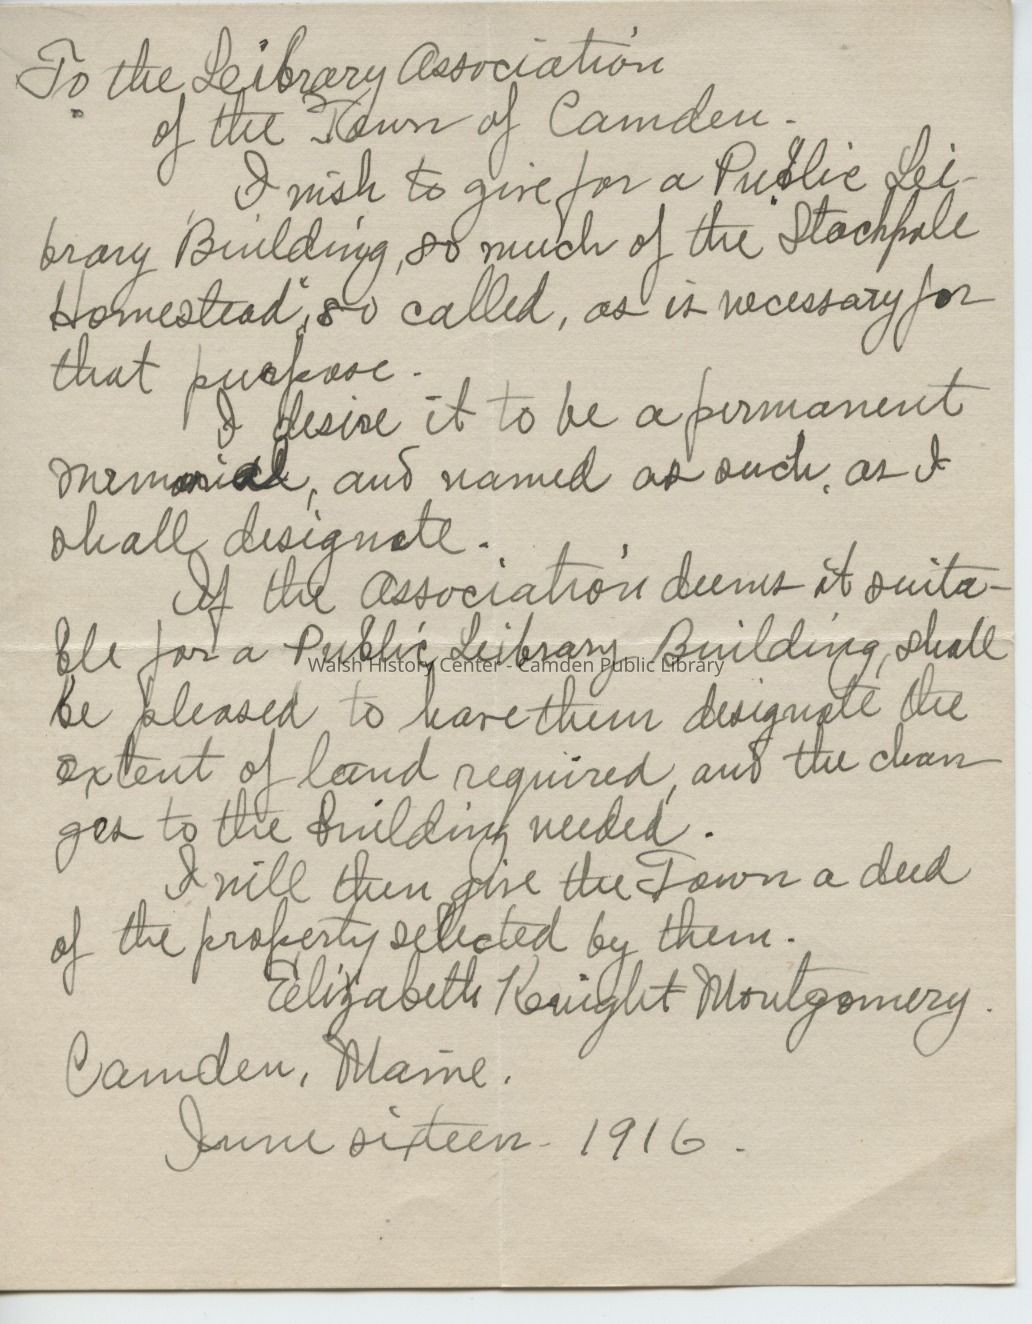 To the Library Association
of the Town of Camden.
I wish to give for a Public Li-
brary Building, so much of the "Stackpole
Homestead", so called, as is necessary for
that purpose.
I desire it to be a permanent
memorial, and named as such, as I
shall designate.
If the Association deems it suita-
ble for a Public Library Building, shall
Walsh History Center - Camden Public Library
be pleased to have them designate the
extent of land required, and the chan
ges to the building needed.
I will then give the Town a deed
of the property selected by them.
Elizabeth Knight Montgomery.
Camden, Maine.
June sixteen - 1916.